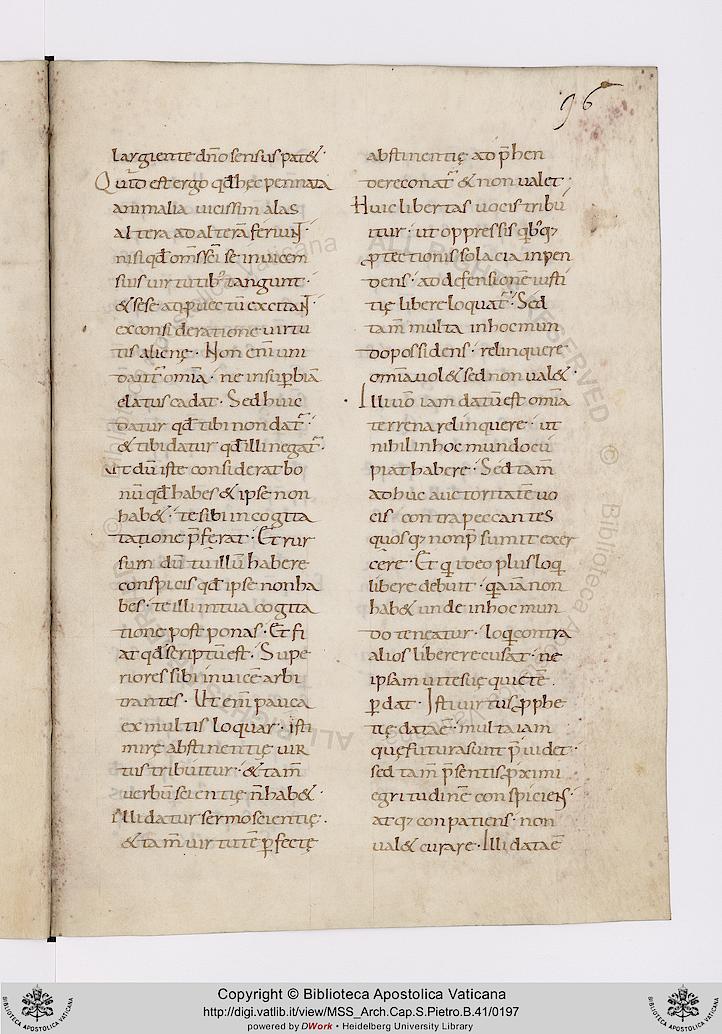 96
largiente dn̄o sensus pat&·
Quid est ergo qd̄ hęc pennata
animalia vicissim alas
altera ad alterā feriunt·
nisi qd̄ om̄s sc̄i se invicem
suis virtutib; tangunt·
& sese ad pvectū excitant·
ex consideratione virtu
tis alienę· Non eni͞ uni
dant᷑ omīa· ne in suꝑbiā
elatus cadat· Sed huic
datur qd̄ tibi non dat᷑·
& tibi datur qd̄ illi negat᷑·
ut dū iste considerat bo
nū qd̄ habes & ipse non
hab&· te sibi in cogita
tatione p̄ferat· Et rur
sum dū tu illū habere
conspicis qd̄ ipse non ha
bes· te illi in tua cogita
tione postponas· Et fi
at qd̄ scriptū est· Supe
riores sibi invicē arbi
trantes· Ut eni͞ pauca
ex multis loquar· isti
mirę abstinentię vir
tus tribuitur· & tam̄
verbū scientię n̄ hab&·
Illi datur sermo scientię·
& tam̄ virtutē ꝑfectę
abstinentię adp̄hen
dere conat᷑ & non valet·
Huic libertas vocis tribu
itur· ut oppressis qib;q;
ꝓtectionis solacia inpen
dens· ad defensionē iusti
tię libere loquat᷑· Sed
tam̄ multa in hoc mun
do possidens· relinquere
omīa vol& sed non val&·
Illi vō iam datū est omīa
terrena relinquere· ut
nihil in hoc mundo cu
piat habere· Sed tam̄
adhuc auctoritatē vo
cis contra peccantes
quosq; non p̄sumit exer
cēre· Et qi ideo plus loqi
libere debuit· qa iā non
hab& unde in hoc mun
do teneatur· loqi contra
alios libere recusat· ne
ipsam vitę suę quietē
ꝑdat· Isti virtus ꝓphe
tię data ē· multa iam
quę futura sunt p̄videt·
sed tam̄ p̄sentis ꝓximi
egritudinē conspiciens·
atq; conpatiens· non
val& curare· Illi data ē
Copyright © Biblioteca Apostolica Vaticana
http://digi.vatlib.it/view/MSS_Arch.Cap.S.Pietro.B.41/0197
powered by DWork • Heidelberg University Library
BIBLIOTECA APOSTOLICA VATICANA
BIBLIOTECA APOSTOLICA VATICANA